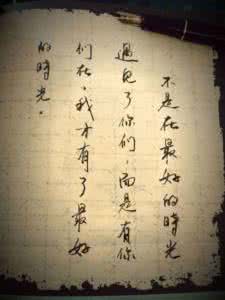 不是在最好的時光
遇見了你们，而是有你
们在，我才有了最好
的時光。